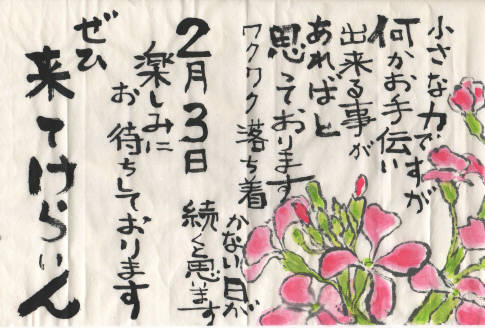 小さな力ですが
何かお手伝い
出来る事が
あればと
思っております
ワクワク落ち着
かない日が
続くと思います
2月3日
楽しみに
お待ちしております
ぜひ
来てけらいん